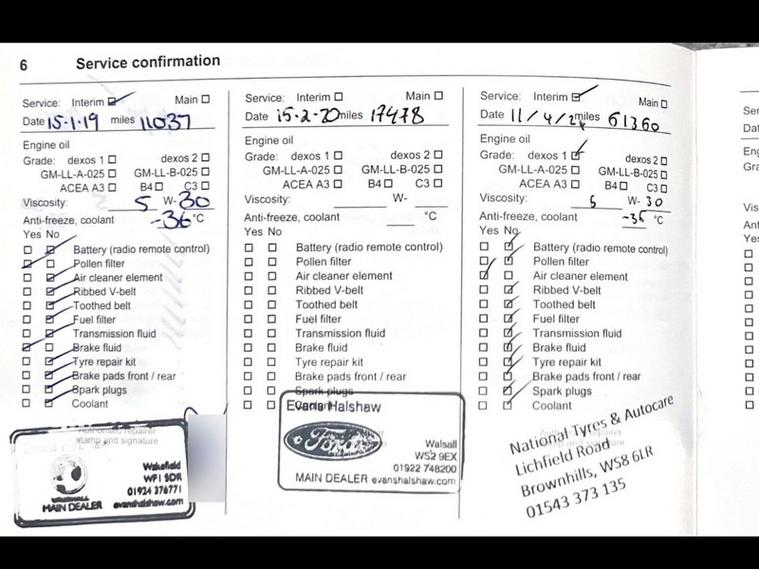 6 Service confirmation
Service: Interim Main
Date 15.1.19 miles 11037
Engine oil
Grade: dexos 1 dexos 2
GM-LL-A-025 GM-LL-B-025
ACEA A3 B4 C3
Viscosity: 5 W- 30
Anti-freeze, coolant -36 °C
Yes No
Battery (radio remote control)
Pollen filter
Air cleaner element
Ribbed V-belt
Toothed belt
Fuel filter
Transmission fluid
Brake fluid
Tyre repair kit
Brake pads front / rear
Spark plugs
Coolant
Authorised repairer
stamp and signature
Wakefield
WF1 5DR
01924 376771
VAUXHALL
MAIN DEALER evanshalshaw.com
Service: Interim Main
Date 15-2-20 miles 17478
Engine oil
Grade: dexos 1 dexos 2
GM-LL-A-025 GM-LL-B-025
ACEA A3 B4 C3
Viscosity: W-
Anti-freeze, coolant °C
Yes No
Battery (radio remote control)
Pollen filter
Air cleaner element
Ribbed V-belt
Toothed belt
Fuel filter
Transmission fluid
Brake fluid
Tyre repair kit
Brake pads front / rear
Spark plugs
Coolant
Evans Halshaw
Ford
Walsall
WS2 9EX
01922 748200
MAIN DEALER evanshalshaw.com
Service: Interim Main
Date 11/4/24 miles 61360
Engine oil
Grade: dexos 1 dexos 2
GM-LL-A-025 GM-LL-B-025
ACEA A3 B4 C3
Viscosity: 5 W- 30
Anti-freeze, coolant °C
Yes No
Battery (radio remote control)
Pollen filter
Air cleaner element
Ribbed V-belt
Toothed belt
Fuel filter
Transmission fluid
Brake fluid
Tyre repair kit
Brake pads front / rear
Spark plugs
Coolant
National Tyres & Autocare
Lichfield Road
Brownhills, WS8 6LR
01543 373 135